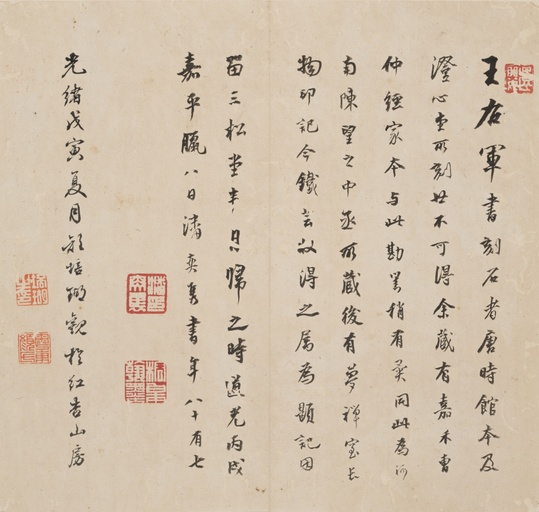 王右軍書刻石者唐時館本及
澄心堂所刻世不可得余藏有嘉禾曹
仲經家本与此勘異稍有異同此為河
南陳望之中丞所藏後有夢禪室長
物印記今鐵芸收得之属為題記因
留三松堂半月歸之時道光丙戌
嘉平臘八日潘奕雋書年八十有七
光緒戊寅夏月顧培瑚觀於紅杏山房